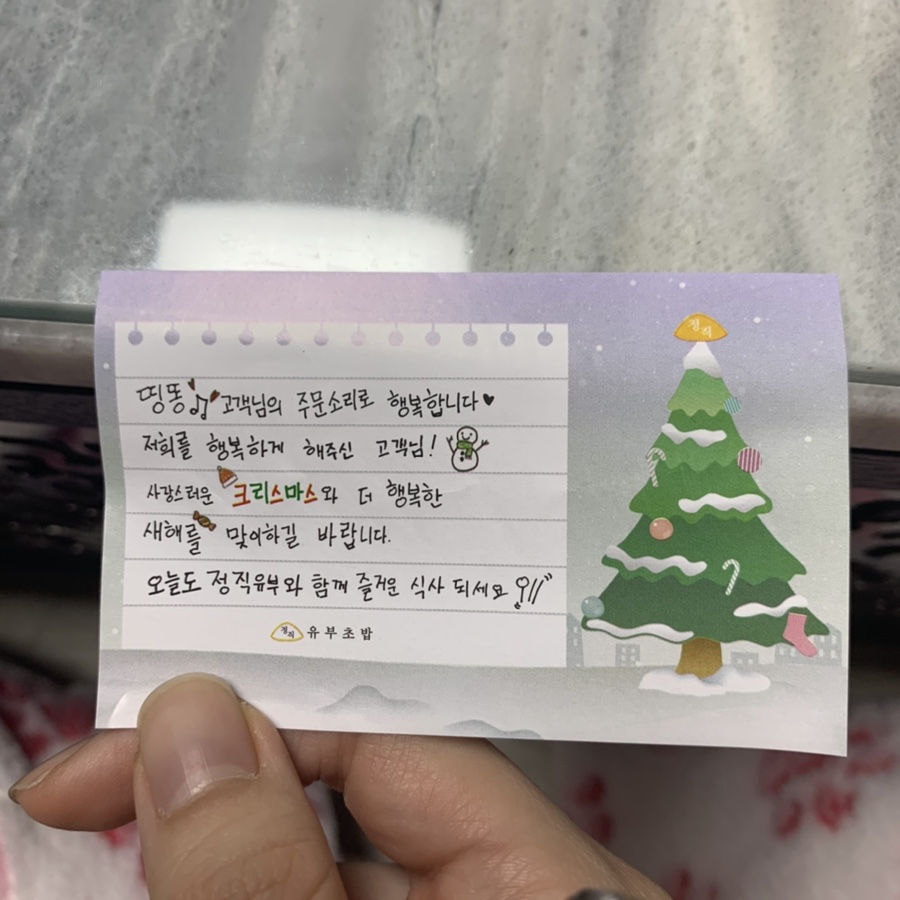 정직
띵똥 고객님의 주문소리로 행복합니다♥
저희를 행복하게 해주신 고객님!
사랑스러운 크리스마스와 더 행복한
새해를 맞이하길 바랍니다.
오늘도 정직유부와 함께 즐거운 식사 되세요
정직 유부초밥